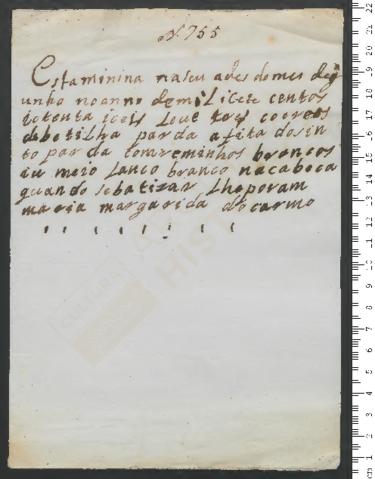 N 755
Esta minina nasceu a des do mes de j
unho no anno de mil i cete centos
i otenta i ceis Leue tres coeros
de betilha parda a fita do sin
to parda com reminhos brancos
iu meio Lanco branco na cabeca
quando se batizar Lhe poram
maria margarida do carmo